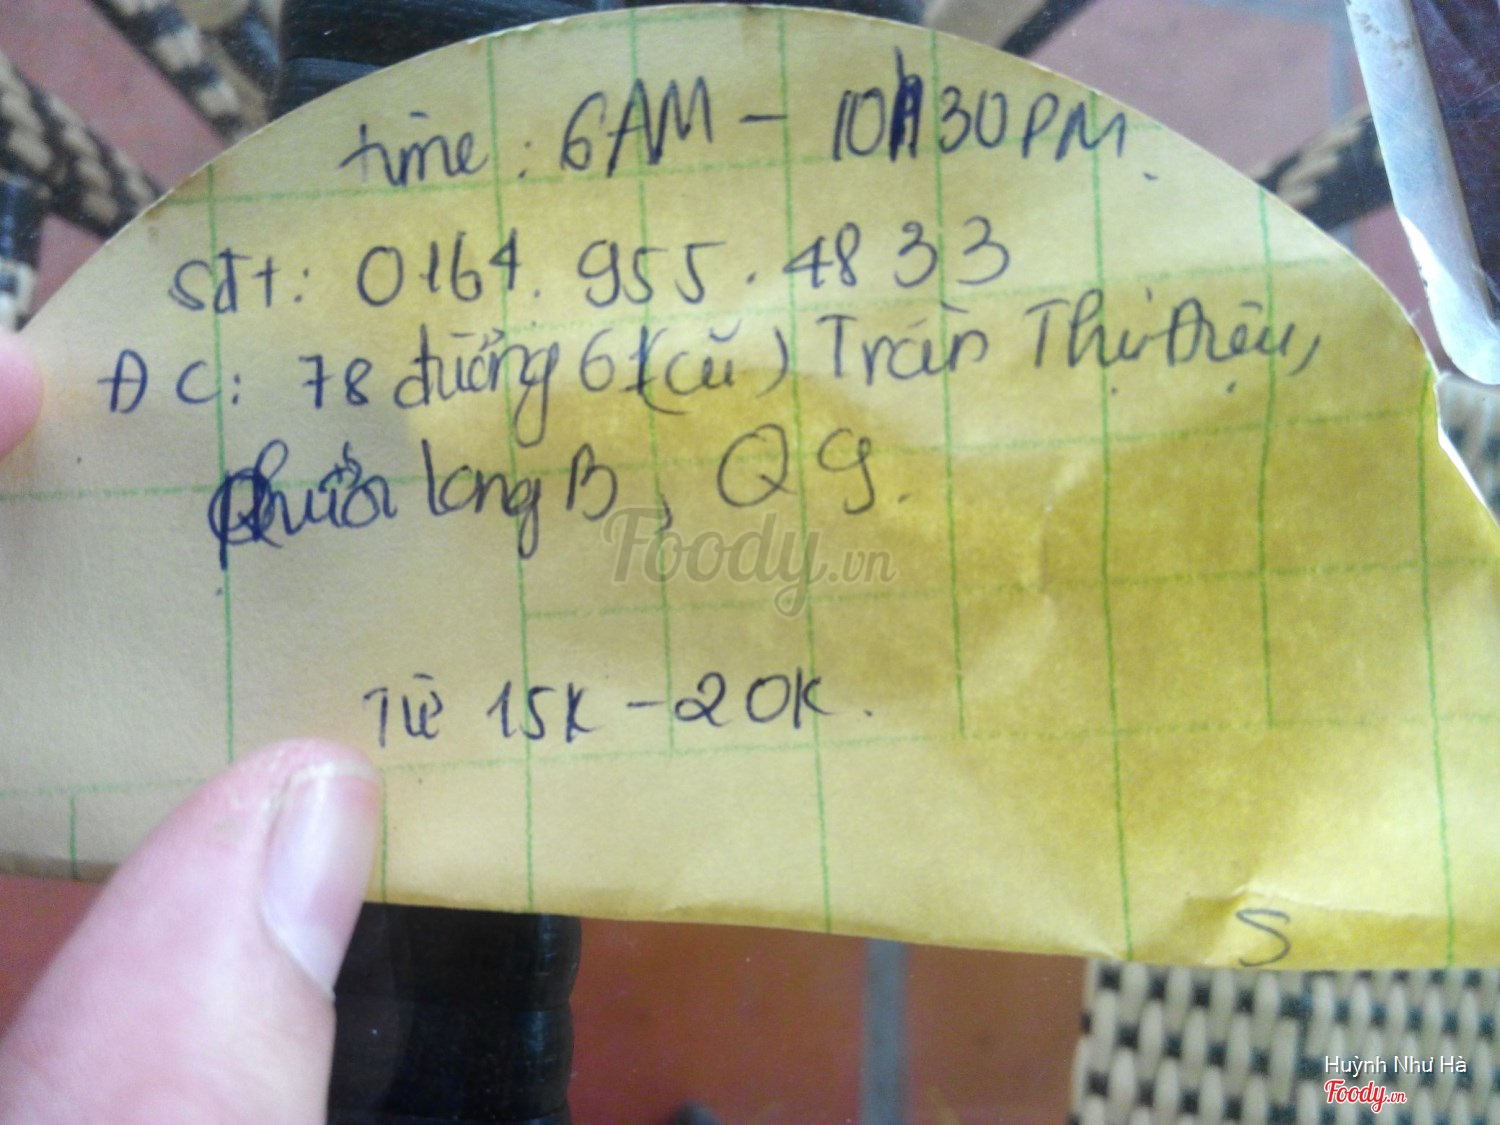 time: 6AM - 10h30PM.
sđt: 0164.955.4833
ĐC: 78 đường 61 (cũ) Trần Thị Điệu,
phước long B, Q9.
Foody.vn
Từ 15K - 20K.
S
Huỳnh Như Hà
Foody.vn